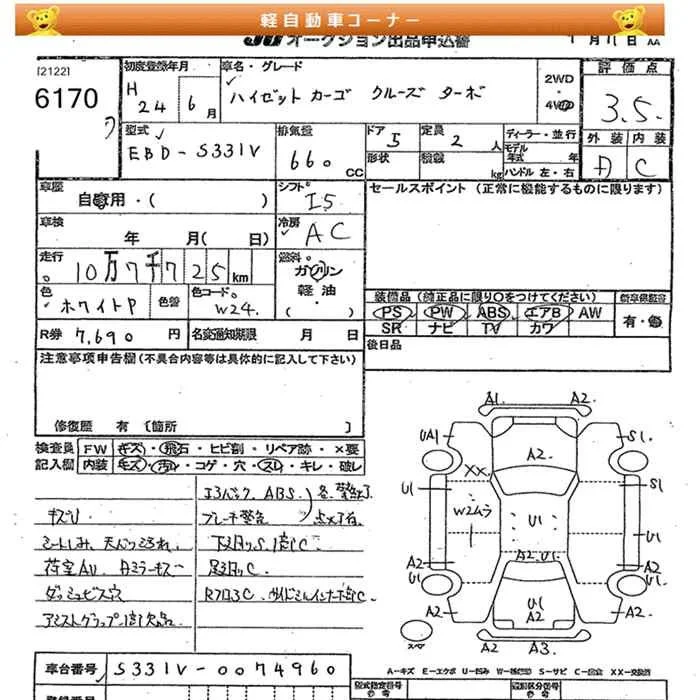 軽自動車コーナー
オークション出品申込書
月11日 AA
[2122]
6170
初度登録年月
H 24 6月
車名・グレード
ハイゼット カーゴ クルーズ ターボ
2WD・4WD
評価点
3.5
外装 内装
A C
型式
EBD-S331V
排気量
660 CC
ドア
5
形状
定員
2 人
積載 kg
ディーラー・並行
モデル年式 年
ハンドル 左・右
車歴
自家用・( )
シフト
I5
セールスポイント(正常に機能するものに限ります)
車検
年 月( 日)
冷房
AC
走行
10万7千725km
燃料
ガソリン
軽油
( )
色
ホワイトP
色替
色コード
W24.
装備品(純正品に限り○をつけてください)
PS PW ABS エアB AW
SR ナビ TV カワ
有・無
R券 7,690円
名変通知期限 月 日
後日品
注意事項申告欄(不具合内容等は具体的に記入して下さい)
修復歴 有 [箇所 ]
検査員記入欄
FW キズ・飛石・ヒビ割・リペア跡・×要
内装 キズ・汚れ・コゲ・穴・スレ・キレ・破レ
エアバック、ABS、
キズU
ブレーキ警告
シートしみ、
荷室AU
下廻りS
足廻りC
ダッシュビス穴
RフロアC
アシストグリップ
欠品
A1. A2
UA1 S1.
A2.
XX
U1 S1
W2ムラ
U1 U1
A2.U1
A2 A2
U1 U1.
U1
A2
A2 A2.
A2 A3.
A-キズ E-エクボ U-凹み W-補修跡 S-サビ C-腐食 XX-交換済
車台番号 S331V-0074960
型式指定番号
類別区分番号